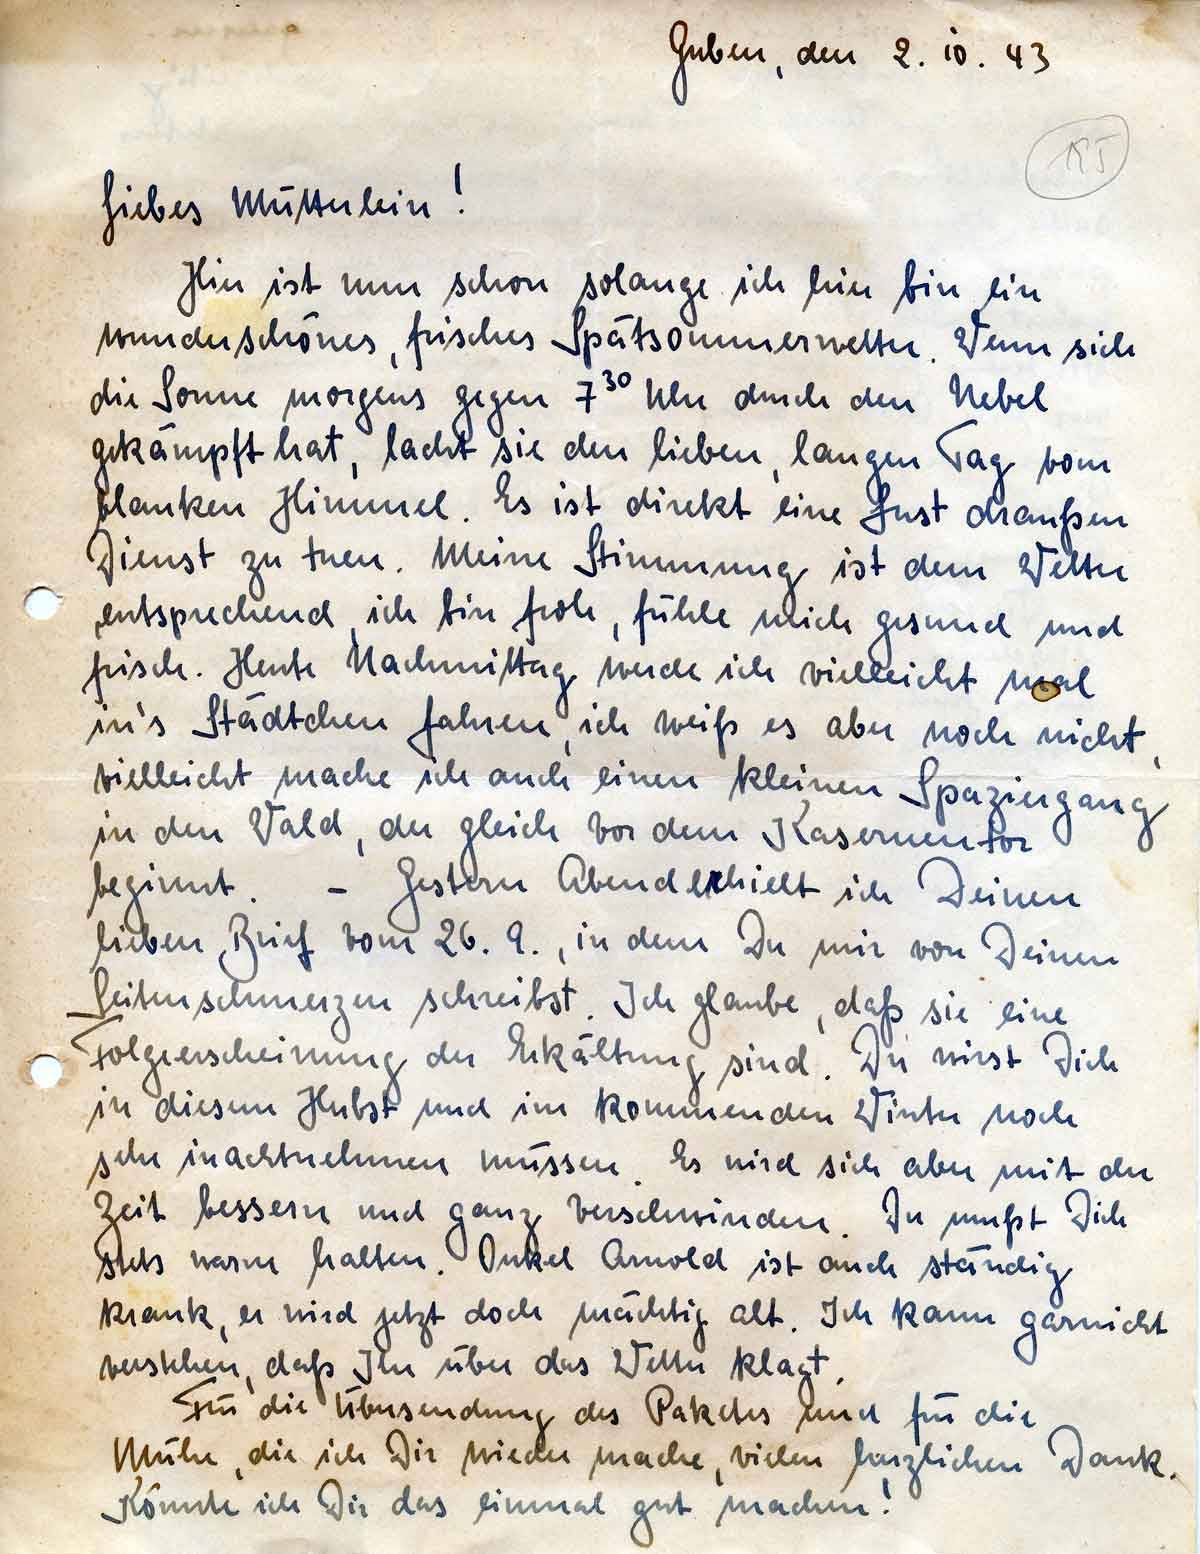 Guben, den 2.10.43
Liebes Mütterlein!
Hier ist nun schon solange ich hier bin ein
wunderschönes, frisches Spätsommerwetter. Wenn sich
die Sonne morgens gegen 7³⁰ Uhr durch den Nebel
gekämpft hat, lacht sie den lieben, langen Tag vom
blanken Himmel. Es ist direkt eine Lust draußen
Dienst zu tuen. Meine Stimmung ist dem Wetter
entsprechend, ich bin froh, fühle mich gesund und
frisch. Heute Nachmittag werde ich vielleicht mal
in's Städtchen fahren, ich weiß es aber noch nicht,
vielleicht mache ich auch einen kleinen Spaziergang
in den Wald, der gleich vor dem Kasernentor
beginnt. – Gestern Abend erhielt ich Deinen
lieben Brief vom 26.9., in dem Du mir von Deinen
Seitenschmerzen schreibst. Ich glaube, daß sie eine
Folgeerscheinung der Erkältung sind. Du wirst Dich
in diesem Herbst und im kommenden Winter noch
sehr inachtnehmen müssen. Es wird sich aber mit der
Zeit bessern und ganz verschwinden. Du mußt Dich
stets warm halten. Onkel Arnold ist auch ständig
krank, er wird jetzt doch mächtig alt. Ich kann garnicht
verstehen, daß Ihr über das Wetter klagt.
Für die Übersendung des Paketes und für die
Mühe, die ich Dir wieder mache, vielen herzlichen Dank.
Könnte ich Dir das einmal gut machen!